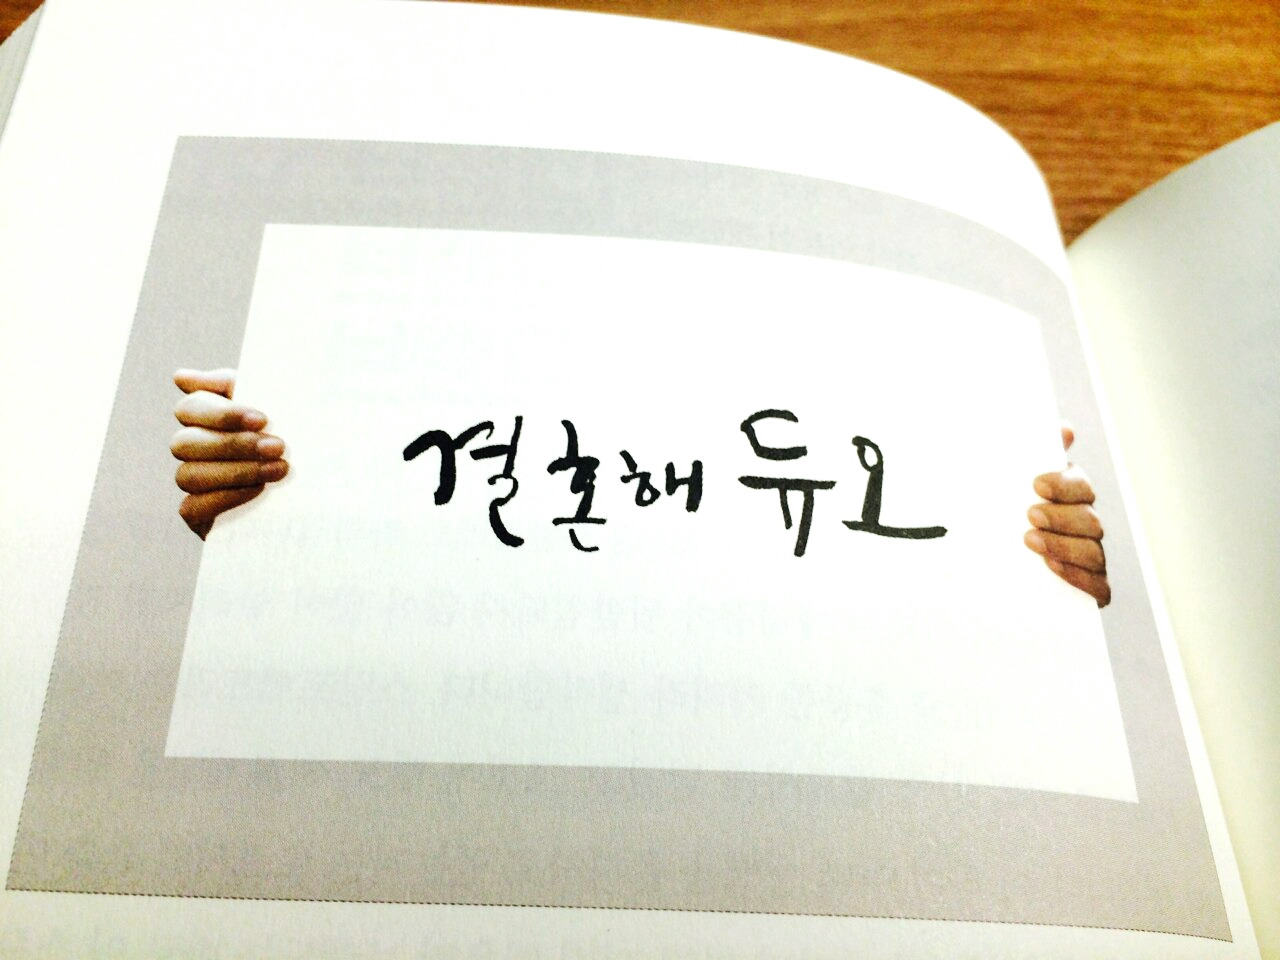 결혼해 듀오